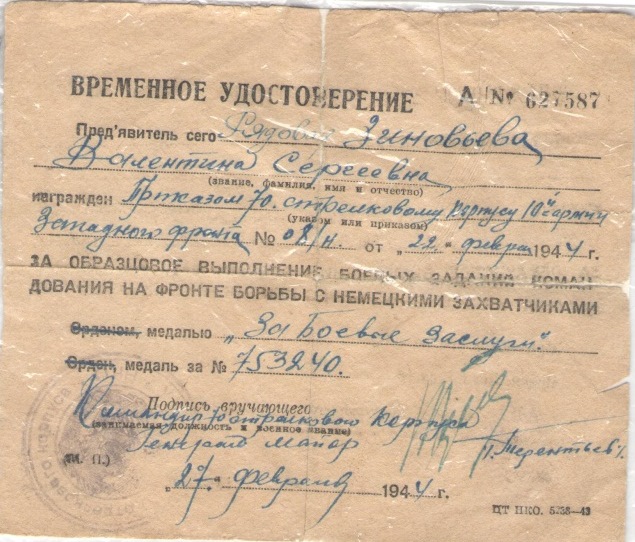 ВРЕМЕННОЕ УДОСТОВЕРЕНИЕ А № 627587
Пред'явитель сего Рядовая Зиновьева
Валентина Сергеевна
(звание, фамилия, имя и отчество)
награжден Приказом 70. стрелковому корпусу 10й армии
(указом или приказом)
Западного фронта № 08/н. от „22" февраля 1944 г.
ЗА ОБРАЗЦОВОЕ ВЫПОЛНЕНИЕ БОЕВЫХ ЗАДАНИЙ КОМАН-
ДОВАНИЯ НА ФРОНТЕ БОРЬБЫ С НЕМЕЦКИМИ ЗАХВАТЧИКАМИ
Орденом, медалью „За Боевые Заслуги".
Орден, медаль за № 753240.
Подпись вручающего
Командир 70 стрелкового Корпуса
(занимаемая должность и военное звание)
Генерал Майор /Терентьев/.
(М. П.)
„27." февраля 1944 г.
ЦТ НКО. 5238—43